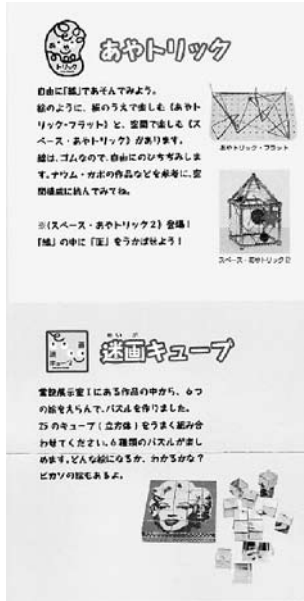 トリック
あやトリック
自由に「線」であそんでみよう。
絵のように、板のうえで楽しむ《あやト
リック・フラット》と、空間で楽しむ《ス
ペース・あやトリック》があります。
線は、ゴムなので、自由にのびちぢみしま
す。ナウム・ガボの作品などを参考に、空
間構成に挑んでみてね。
あやトリック・フラット
※《スペース・あやトリック2》登場!
「線」の中に「面」をうかばせよう!
スペース・あやトリック2
めいが
迷画キューブ
常設展示室Iにある作品の中から、6つ
の絵をえらんで、パズルを作りました。
25のキューブ(立方体)をうまく組み合
わせてください。6種類のパズルが楽し
めます。どんな絵になるか、わかるかな?
ピカソの絵もあるよ。